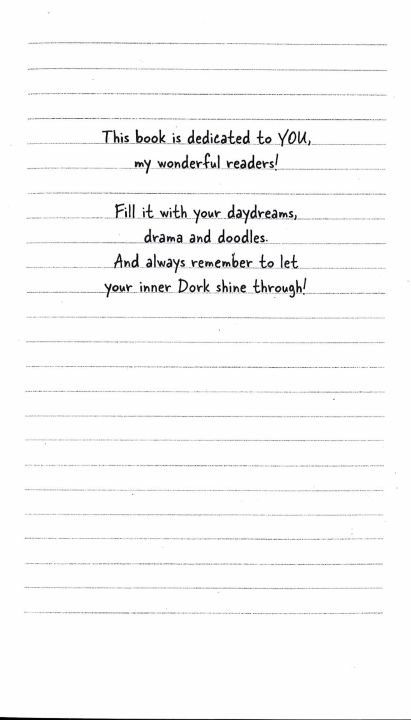 This book is dedicated to YOU,
my wonderful readers!
Fill it with your daydreams,
drama and doodles.
And always remember to let
your inner Dork shine through!